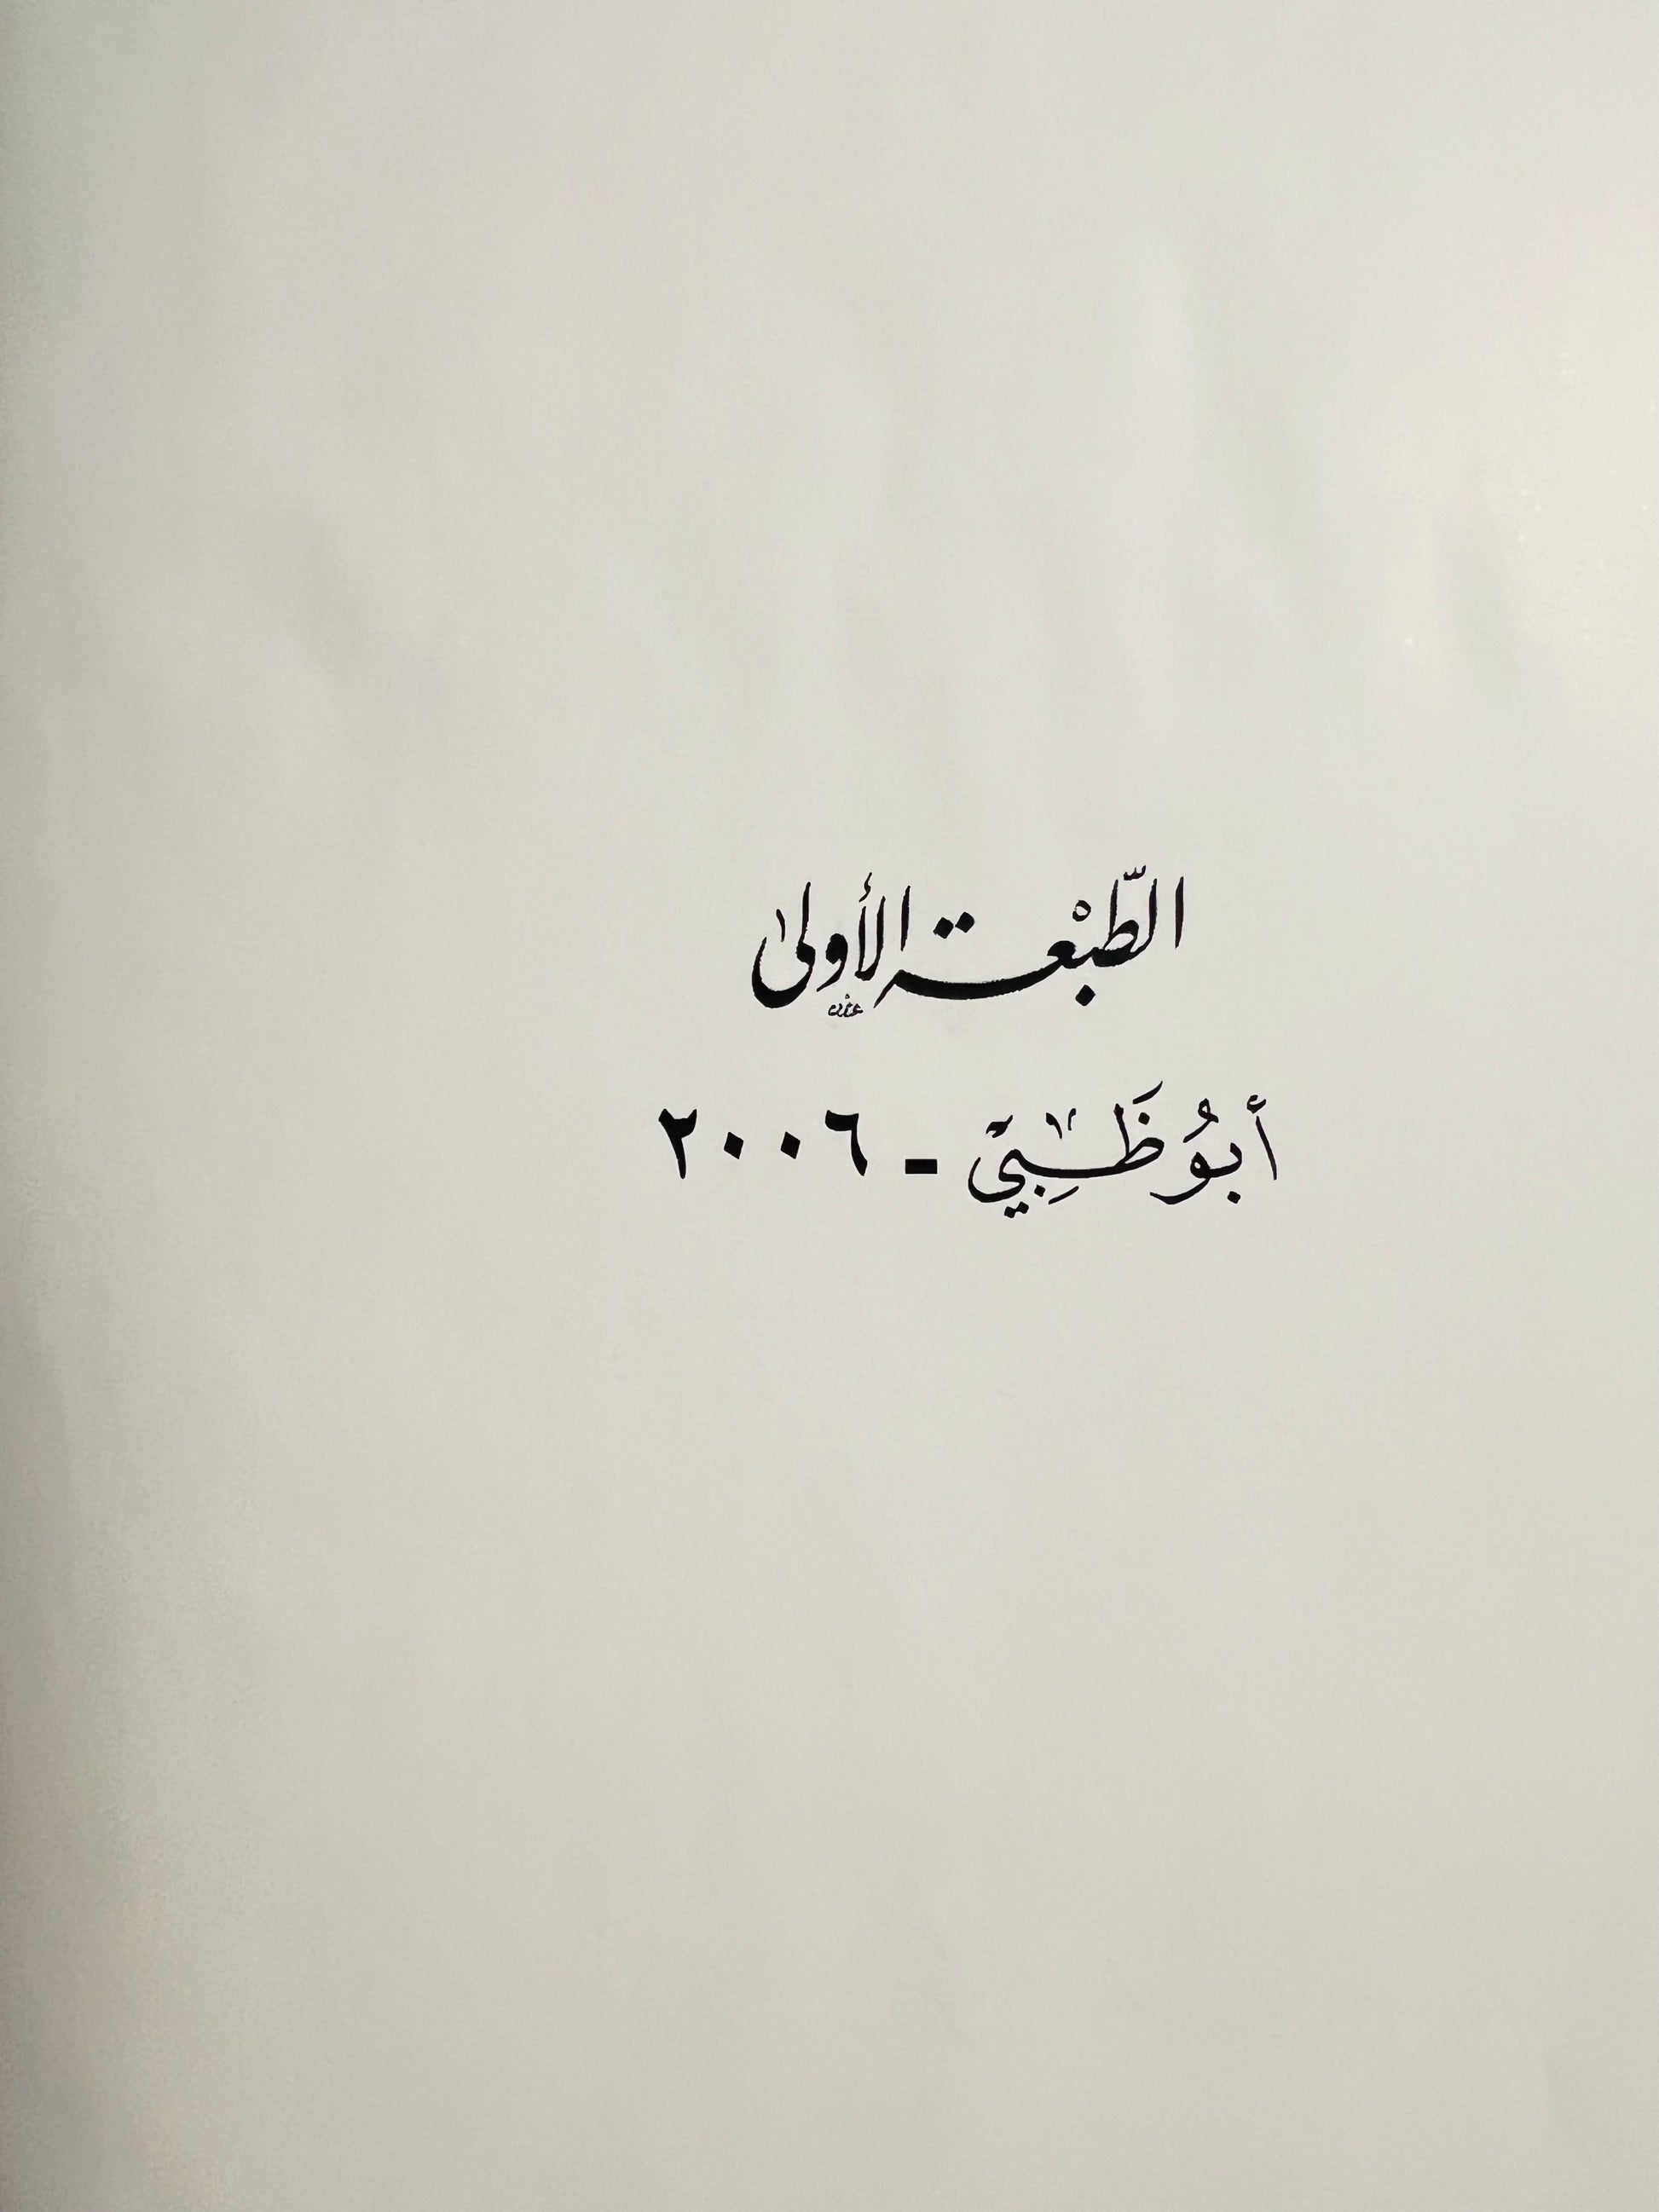 الطّبْعة الأولىٰ
أبُو ظَبِيْ - ٢٠٠٦